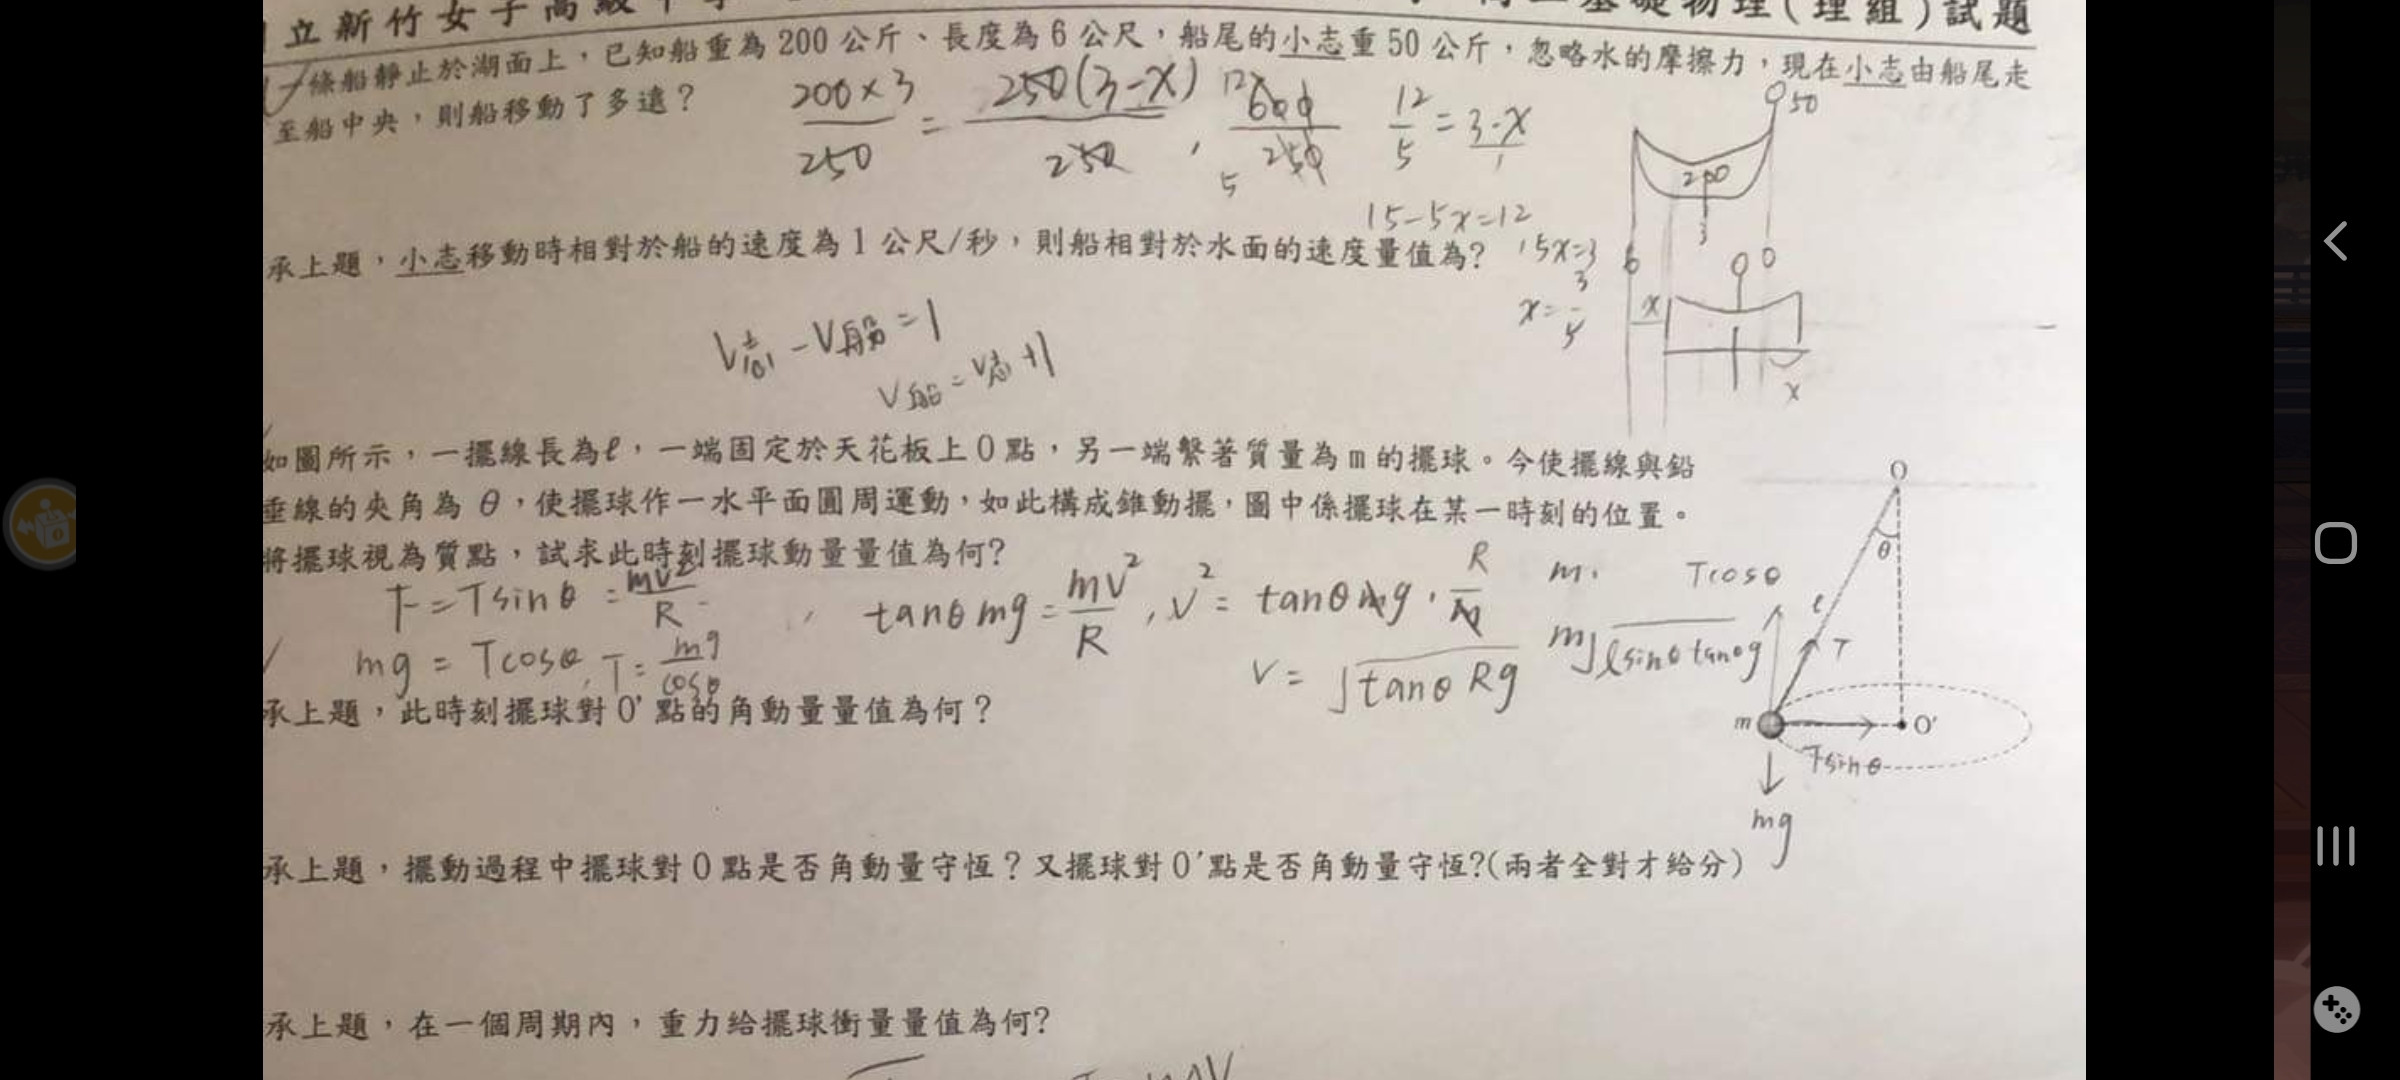 立新竹女子高級中學
基礎物理(理組)試題
一條船靜止於湖面上，已知船重為 200 公斤、長度為 6 公尺，船尾的小志重 50 公斤，忽略水的摩擦力，現在小志由船尾走
至船中央，則船移動了多遠？
200×3/250 = 250(3-x)/250 , 600/250 12/5 12/5 = 3-x/1
15-5x=12
15x=3
x=3/5
50
200
3
6
0
x
x
承上題，小志移動時相對於船的速度為 1 公尺/秒，則船相對於水面的速度量值為?
V志 - V船 = 1
V船 = V志 + 1
如圖所示，一擺線長為ℓ，一端固定於天花板上 O 點，另一端繫著質量為 m 的擺球。今使擺線與鉛
垂線的夾角為 θ，使擺球作一水平面圓周運動，如此構成錐動擺，圖中係擺球在某一時刻的位置。
將擺球視為質點，試求此時刻擺球動量量值為何?
F = Tsinθ = mv²/R , tanθ mg = mv²/R , v² = tanθ mg · R/m
mg = Tcosθ , T = mg/cosθ
v = √tanθ Rg
m·
m√ℓsinθ tanθ g
O
θ
ℓ
Tcosθ
T
m
O'
Tsinθ
mg
承上題，此時刻擺球對 O' 點的角動量量值為何？
承上題，擺動過程中擺球對 O 點是否角動量守恆？又擺球對 O'點是否角動量守恆?(兩者全對才給分)
承上題，在一個周期內，重力給擺球衝量量值為何?